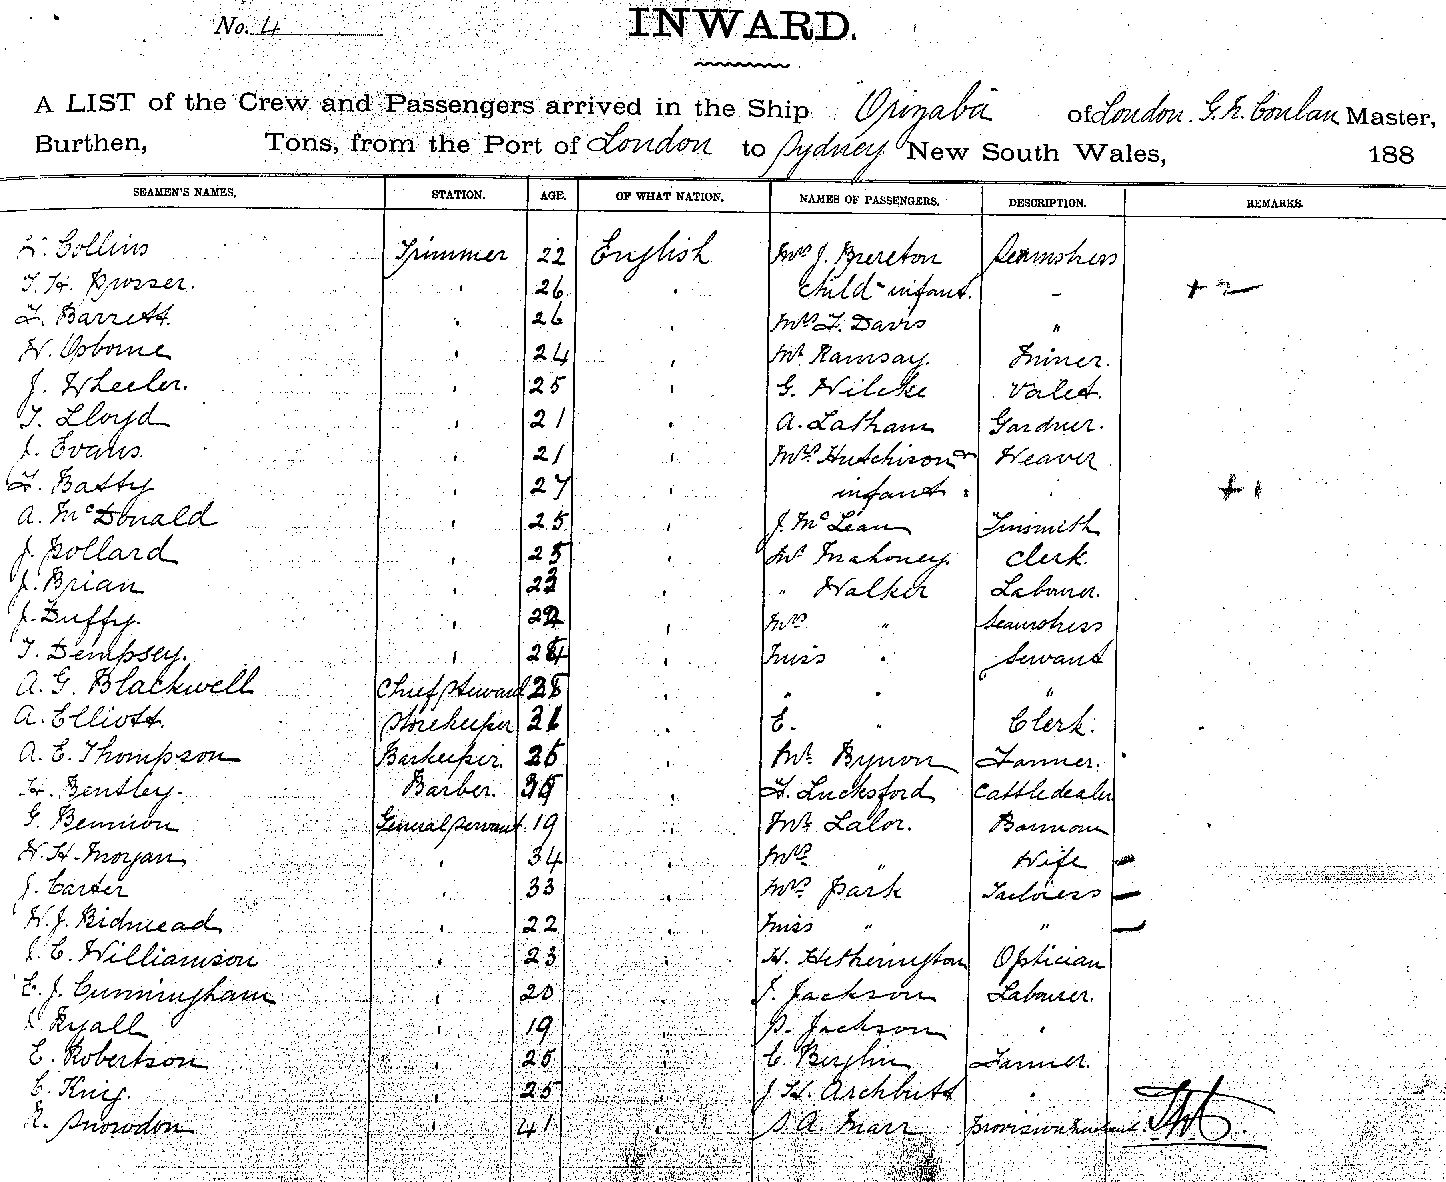 No. 4
INWARD.
A LIST of the Crew and Passengers arrived in the Ship Orizaba of London. G. N. Conlan Master,
Burthen, Tons, from the Port of London to Sydney New South Wales, 188
SEAMEN'S NAMES. STATION. AGE. OF WHAT NATION. NAMES OF PASSENGERS. DESCRIPTION. REMARKS.
Collins Trimmer 22 English Mrs J. Brereton Seamstress
T. H. Prosser. " 26 " child - infant. - + 2
Barrett. " 26 " Mrs T. Davis "
W. Osborne " 24 " Mr Ramsay. Miner.
J. Wheeler. " 25 " G. Wilcke Valet.
T. Lloyd " 21 " A. Latham Gardner.
J. Evans. " 21 " Mrs Hutchison Weaver
Batty " 27 " infant " + 1
A. McDonald " 25 " J. McLean Tinsmith
J. Pollard " 25 " Mr Mahoney. Clerk.
J. Brian " " " Walker Labourer.
J. Duffy. " " Mrs " Seamstress
T. Dempsey. " " Miss " Servant
A. G. Blackwell Chief Steward " " " "
A. Elliott. Storekeeper " E. " Clerk.
A. E. Thompson Barkeeper. " Mr. Bynon Farmer.
H. Bentley. Barber. " Lucksford Cattledealer
G. Bennion General Servant. 19 " Mr. Lalor. Barman
W. H. Morgan " 34 " Mrs " Wife
J. Carter " 33 " Mrs Park Tailoress
W. J. Bidmead " 22 " Miss " "
C. Williamson " 23 " H. Hetherington Optician
E. J. Cunningham " 20 " J. Jackson Labourer.
Ryall " 19 " Jackson "
E. Robertson " 25 " C. Berghin Farmer.
C. King. " 25 " J. H. Archbutt "
Snowdon " 41 " A. Marr Provision